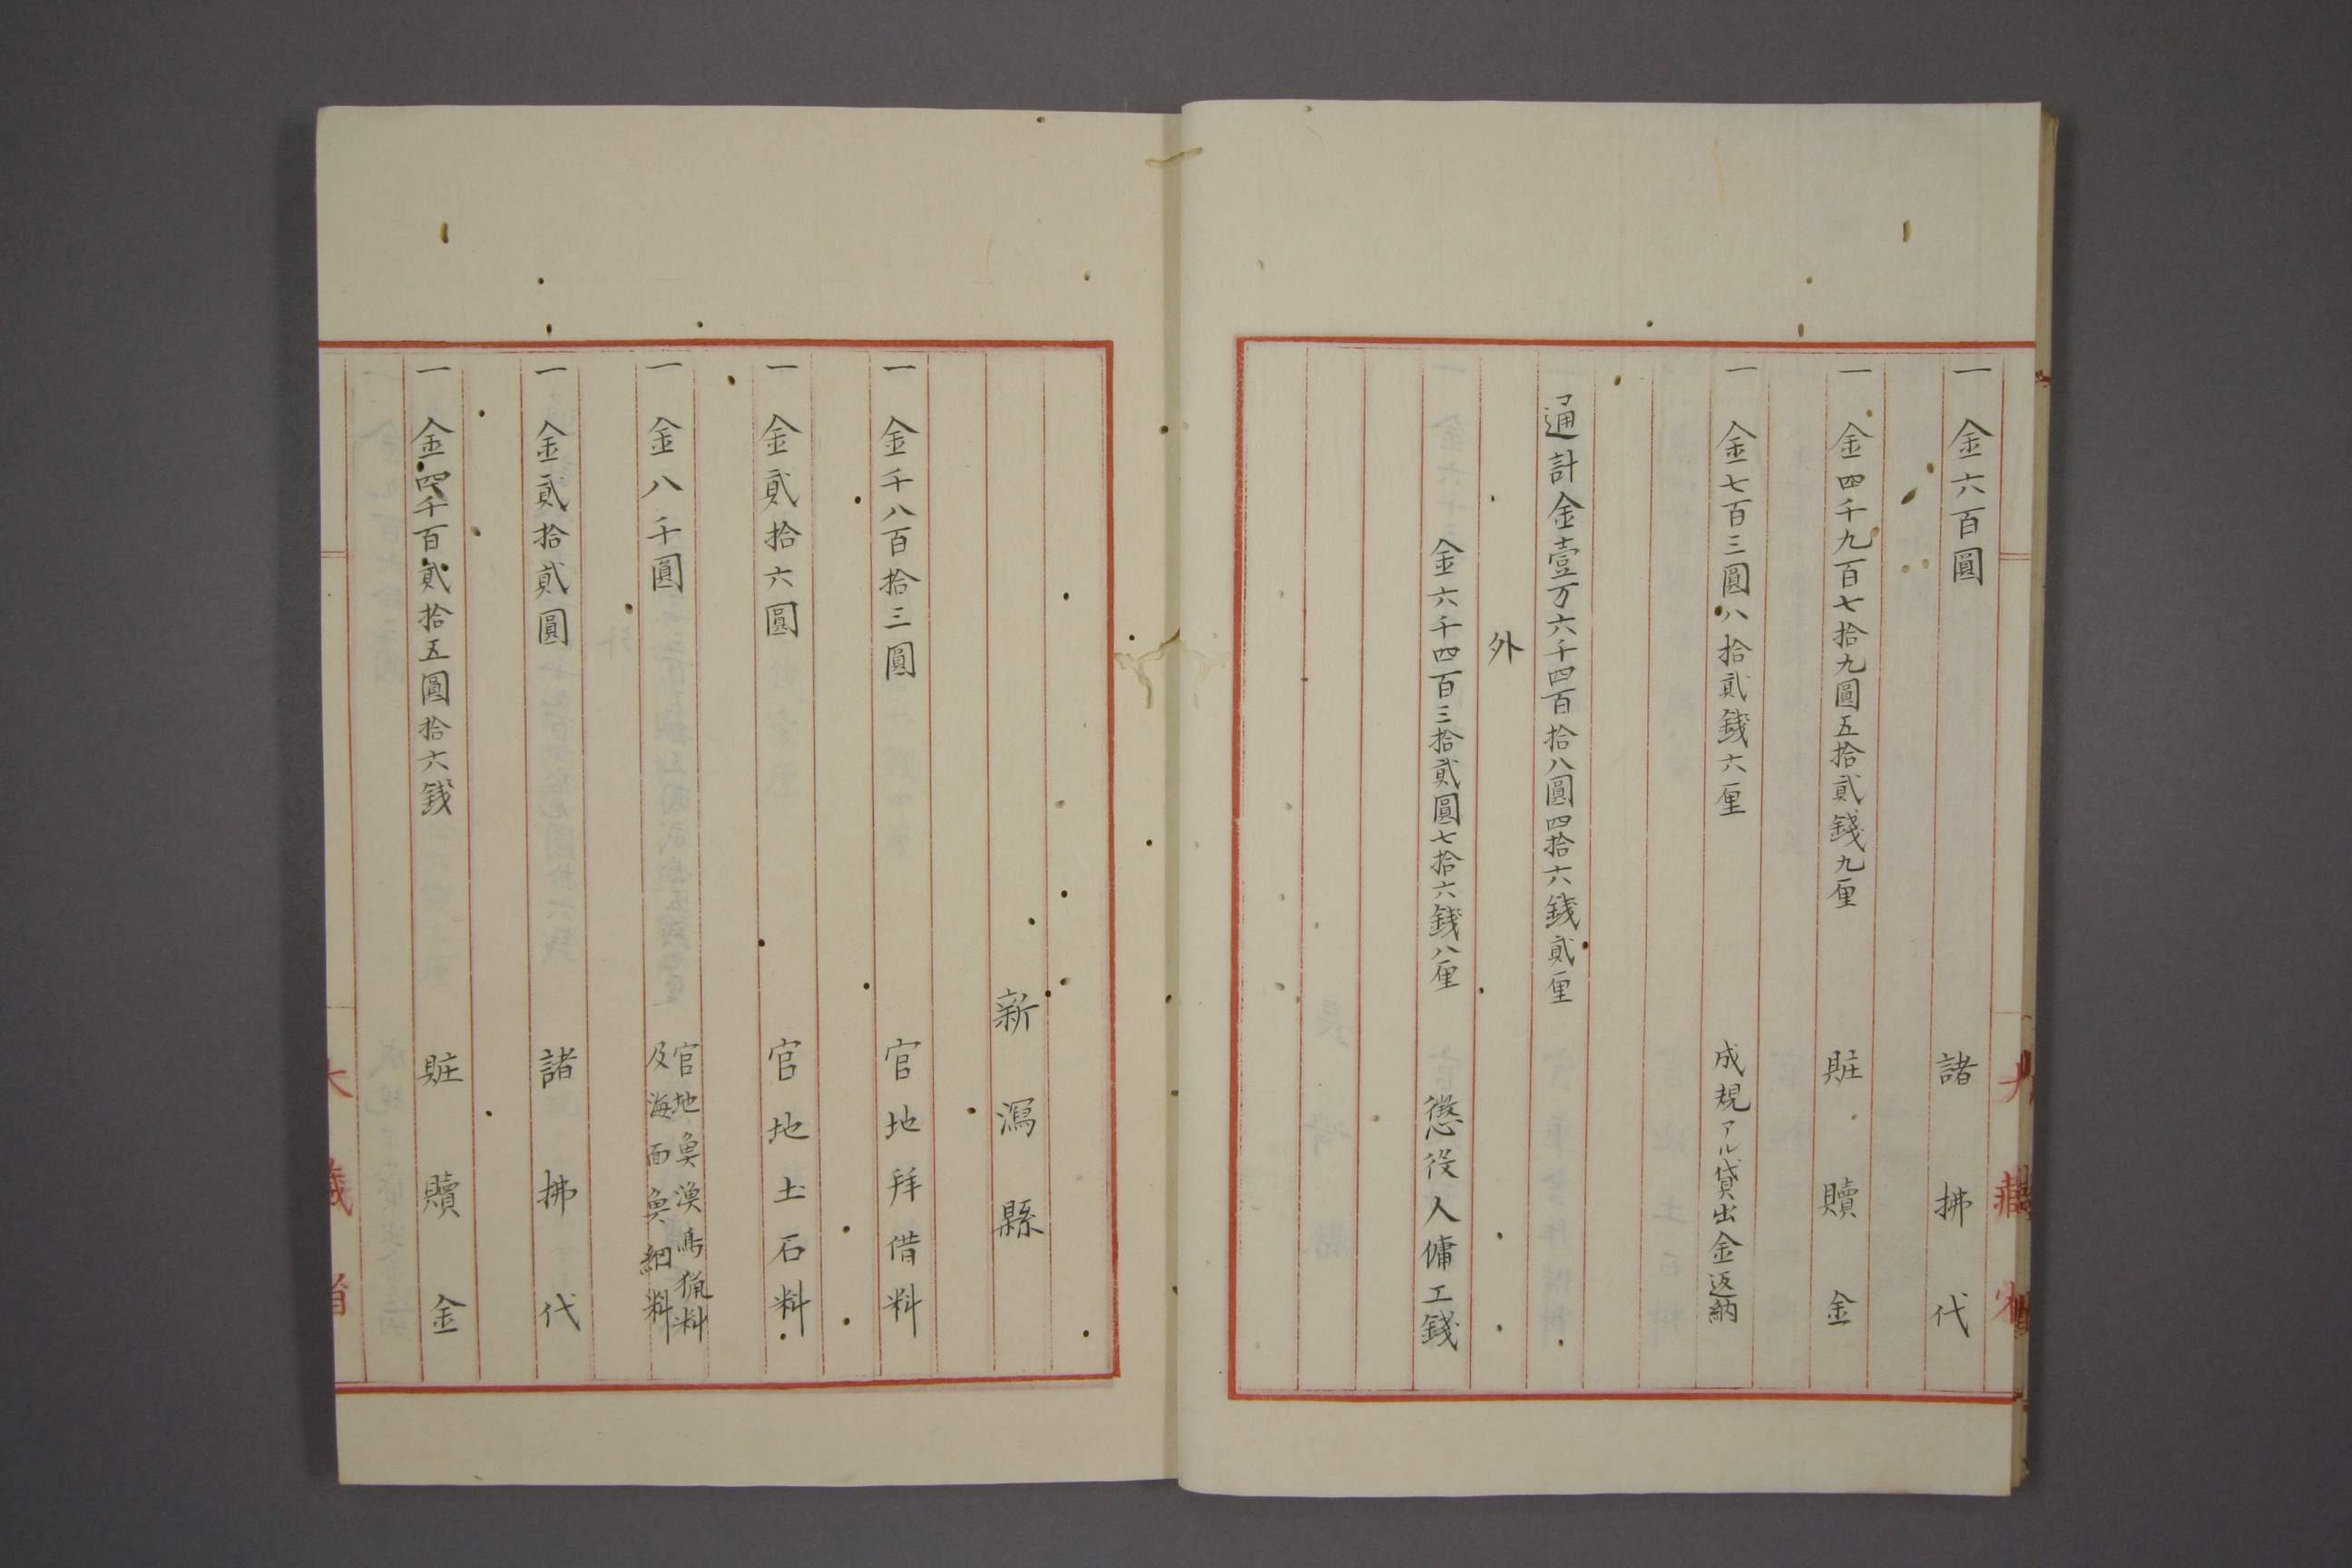 一 金六百圓 諸拂代
一 金四千九百七拾九圓五拾貳錢九厘 賍贖金
一 金七百三圓八拾貳錢六厘 成規アル貸出金返納
通計金壹万六千四百拾八圓四拾六錢貳厘
外
金六千四百三拾貳圓七拾六錢八厘 懲役人傭工錢
新瀉縣
一 金千八百拾三圓 官地拜借料
一 金貳拾六圓 官地土石料
一 金八千圓 官地魚漁鳥猟料
及海面魚網料
一 金貳拾貳圓 諸拂代
一 金四千百貳拾五圓拾六錢 賍贖金
大藏省